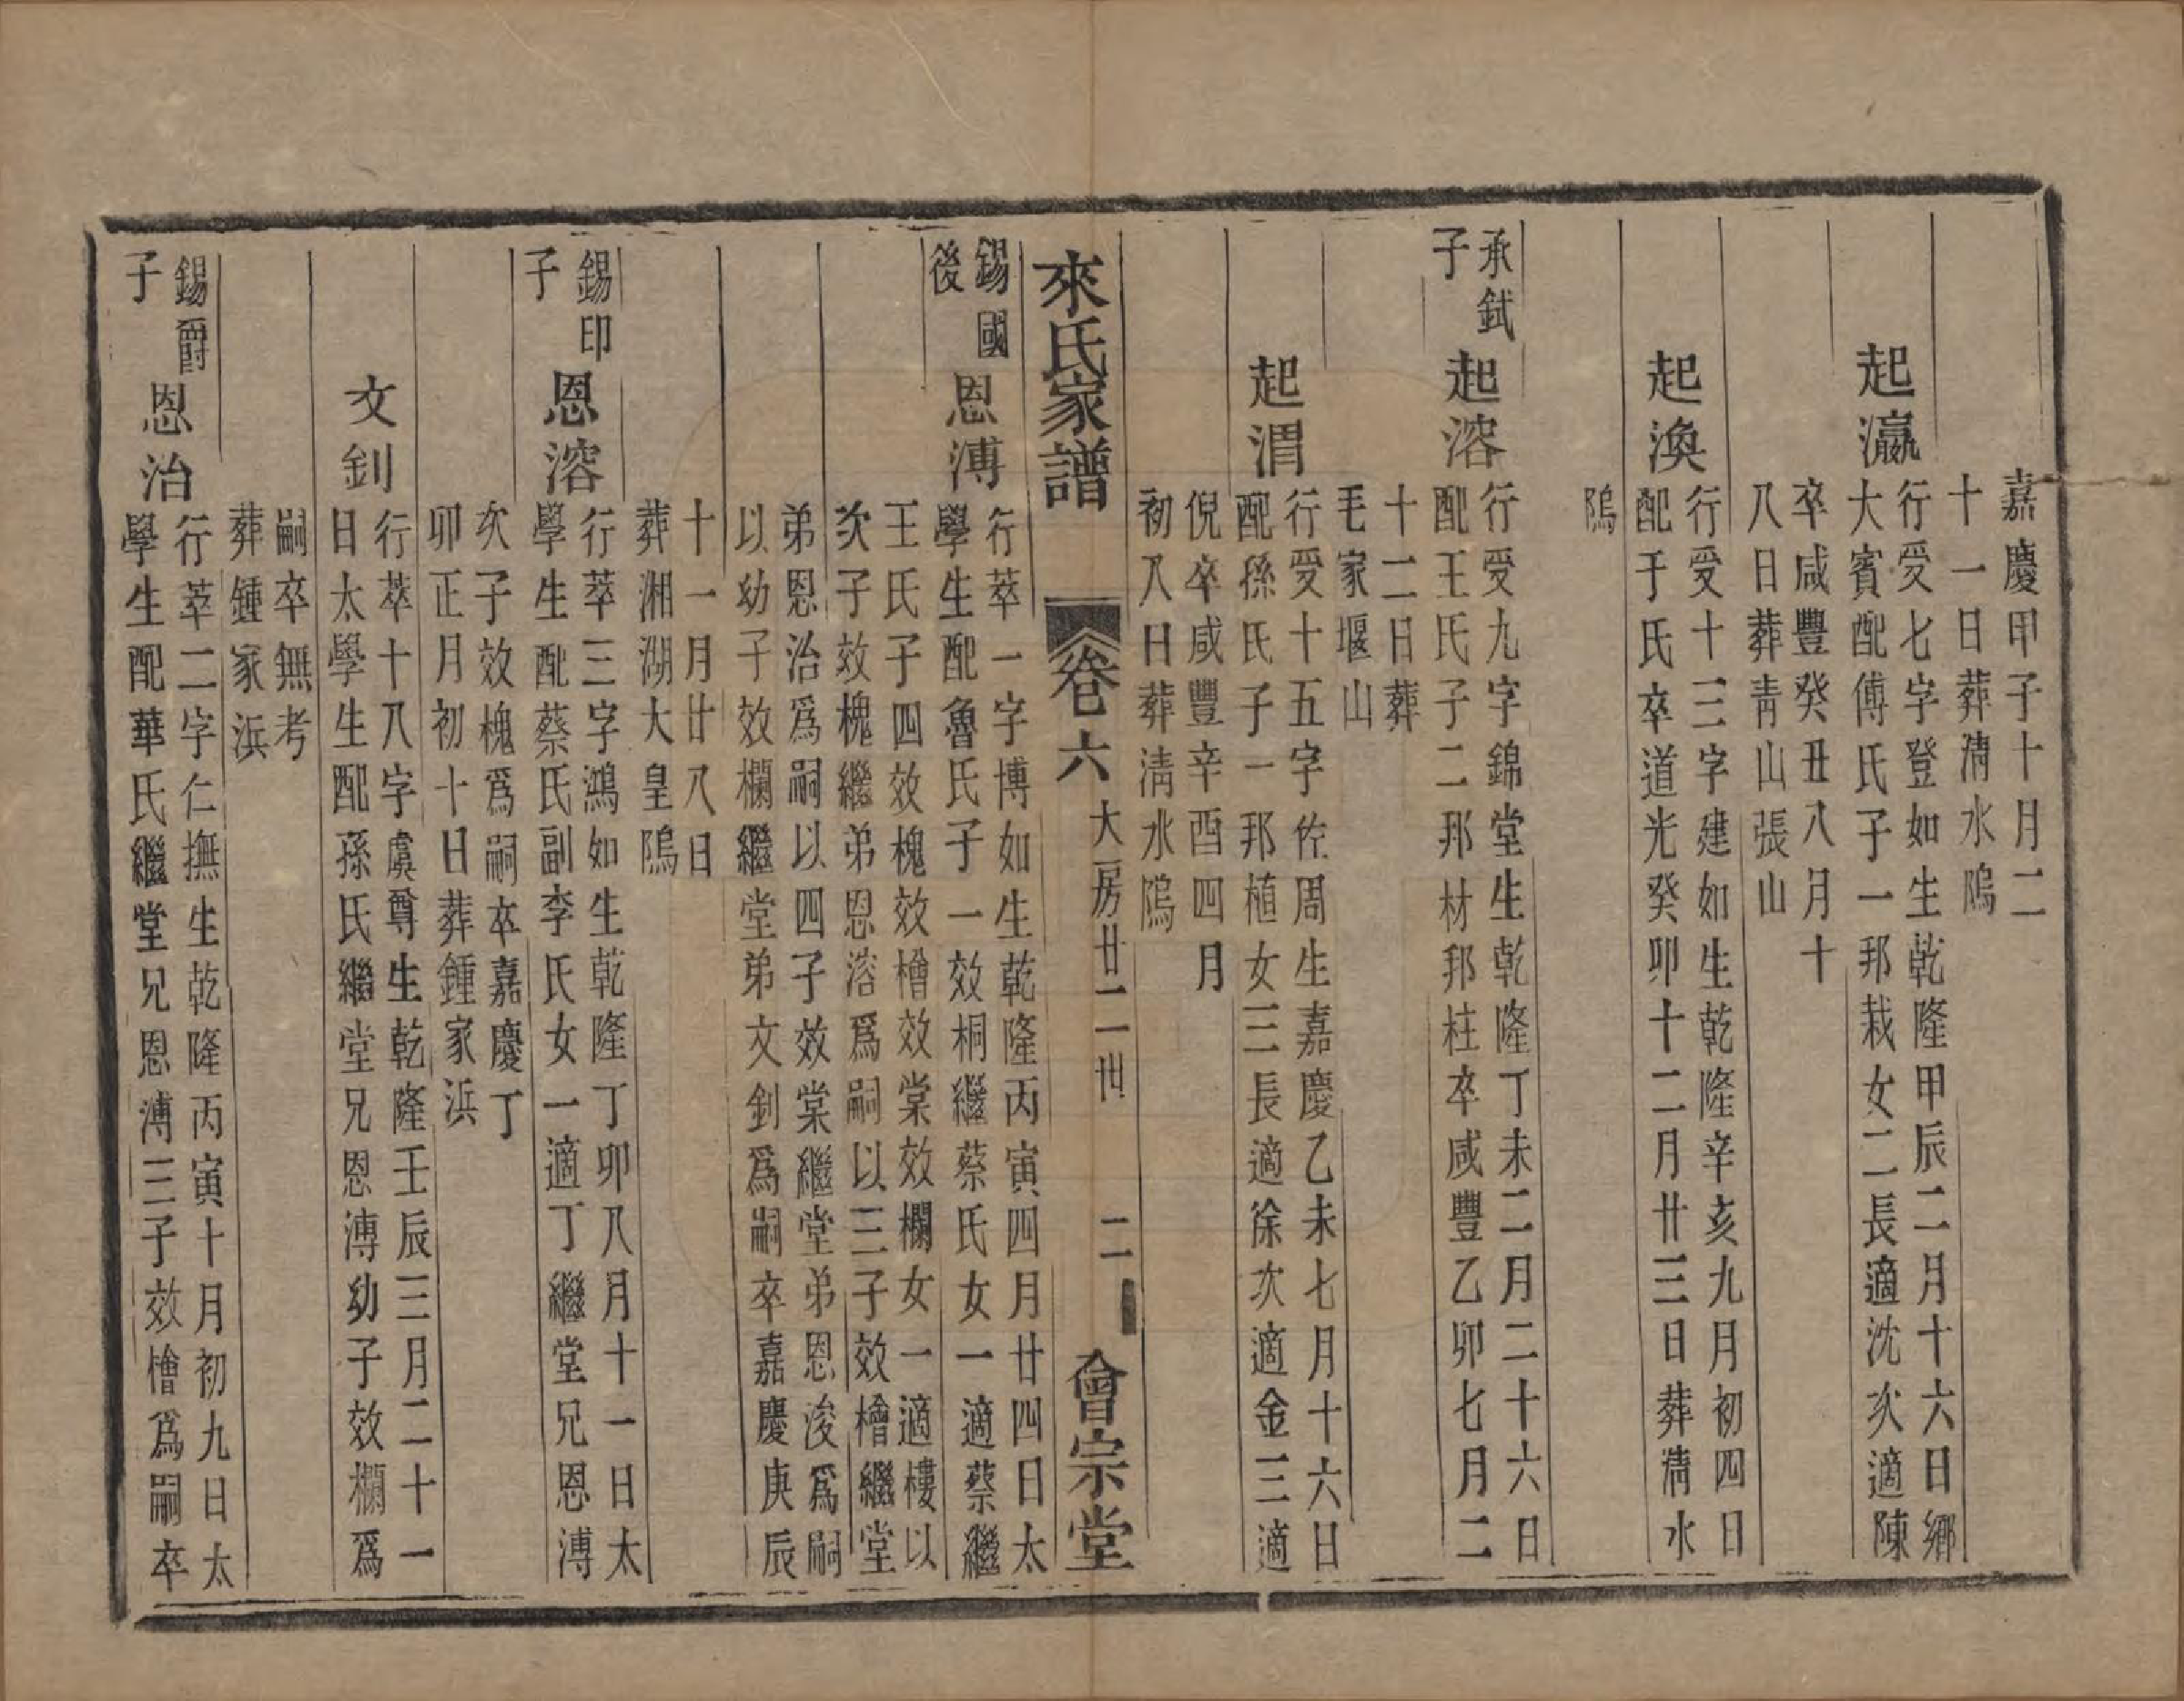 嘉慶甲子十月二
十一日葬淸水隖
起瀛
行受七字登如生乾隆甲辰二月十六日鄉
大賓配傅氏子一邦栽女二長適沈次適陳
卒咸豐癸丑八月十
八日葬靑山張山
起渙
行受十三字建如生乾隆辛亥九月初四日
配于氏卒道光癸卯十二月廿三日葬淸水
隖
承鉽
子
起溶
行受九字錦堂生乾隆丁未二月二十六日
配王氏子二邦材邦柱卒咸豐乙卯七月二
十二日葬
毛家堰山
起渭
行受十五字佐周生嘉慶乙未七月十六日
配孫氏子一邦植女三長適徐次適金三適
倪卒咸豐辛酉四月
初八日葬淸水隖
來氏家譜
卷六
大房廿二世
二
會宗堂
錫國
後
恩溥
行萃一字博如生乾隆丙寅四月廿四日太
學生配魯氏子一效桐繼蔡氏女一適蔡繼
王氏子四效槐效檜效棠效欄女一適樓以
次子效槐繼弟恩溶爲嗣以三子效檜繼堂
弟恩治爲嗣以四子效棠繼堂弟恩浚爲嗣
以幼子效欄繼堂弟文釗爲嗣卒嘉慶庚辰
十一月廿八日
葬湘湖大皇隖
錫印
子
恩溶
行萃三字鴻如生乾隆丁卯八月十一日太
學生配蔡氏副李氏女一適丁繼堂兄恩溥
次子效槐爲嗣卒嘉慶丁
卯正月初十日葬鍾家浜
文釗
行萃十八字虞尊生乾隆壬辰三月二十一
日太學生配孫氏繼堂兄恩溥幼子效欄爲
嗣卒無考
葬鍾家浜
錫爵
子
恩治
行萃二字仁撫生乾隆丙寅十月初九日太
學生配華氏繼堂兄恩溥三子效檜爲嗣卒